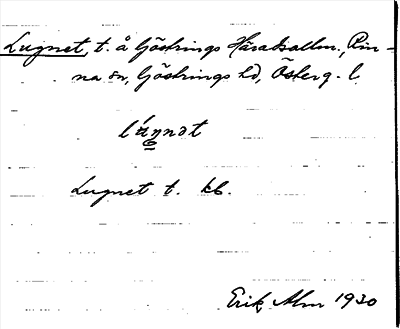 Lugnet, t. å Göstrings Häradsallm., Rin-
na sn, Göstrings hd, Österg. l.
Lugnet t. kb.
Erik Alm 1920